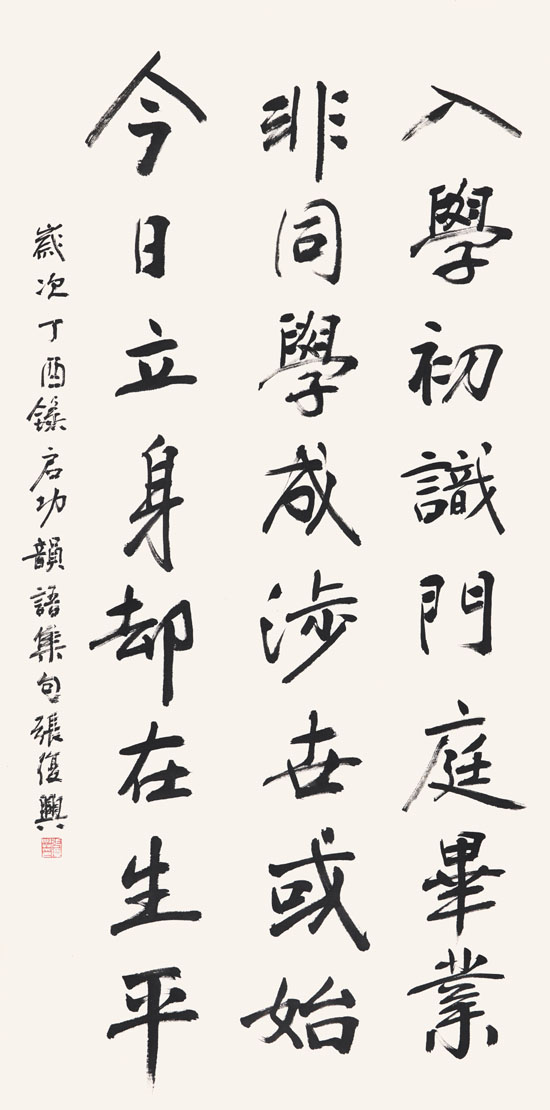 入學初識門庭畢業
非同學成涉世或始
今日立身却在生平
歲次丁酉錄启功韻語集句張復興